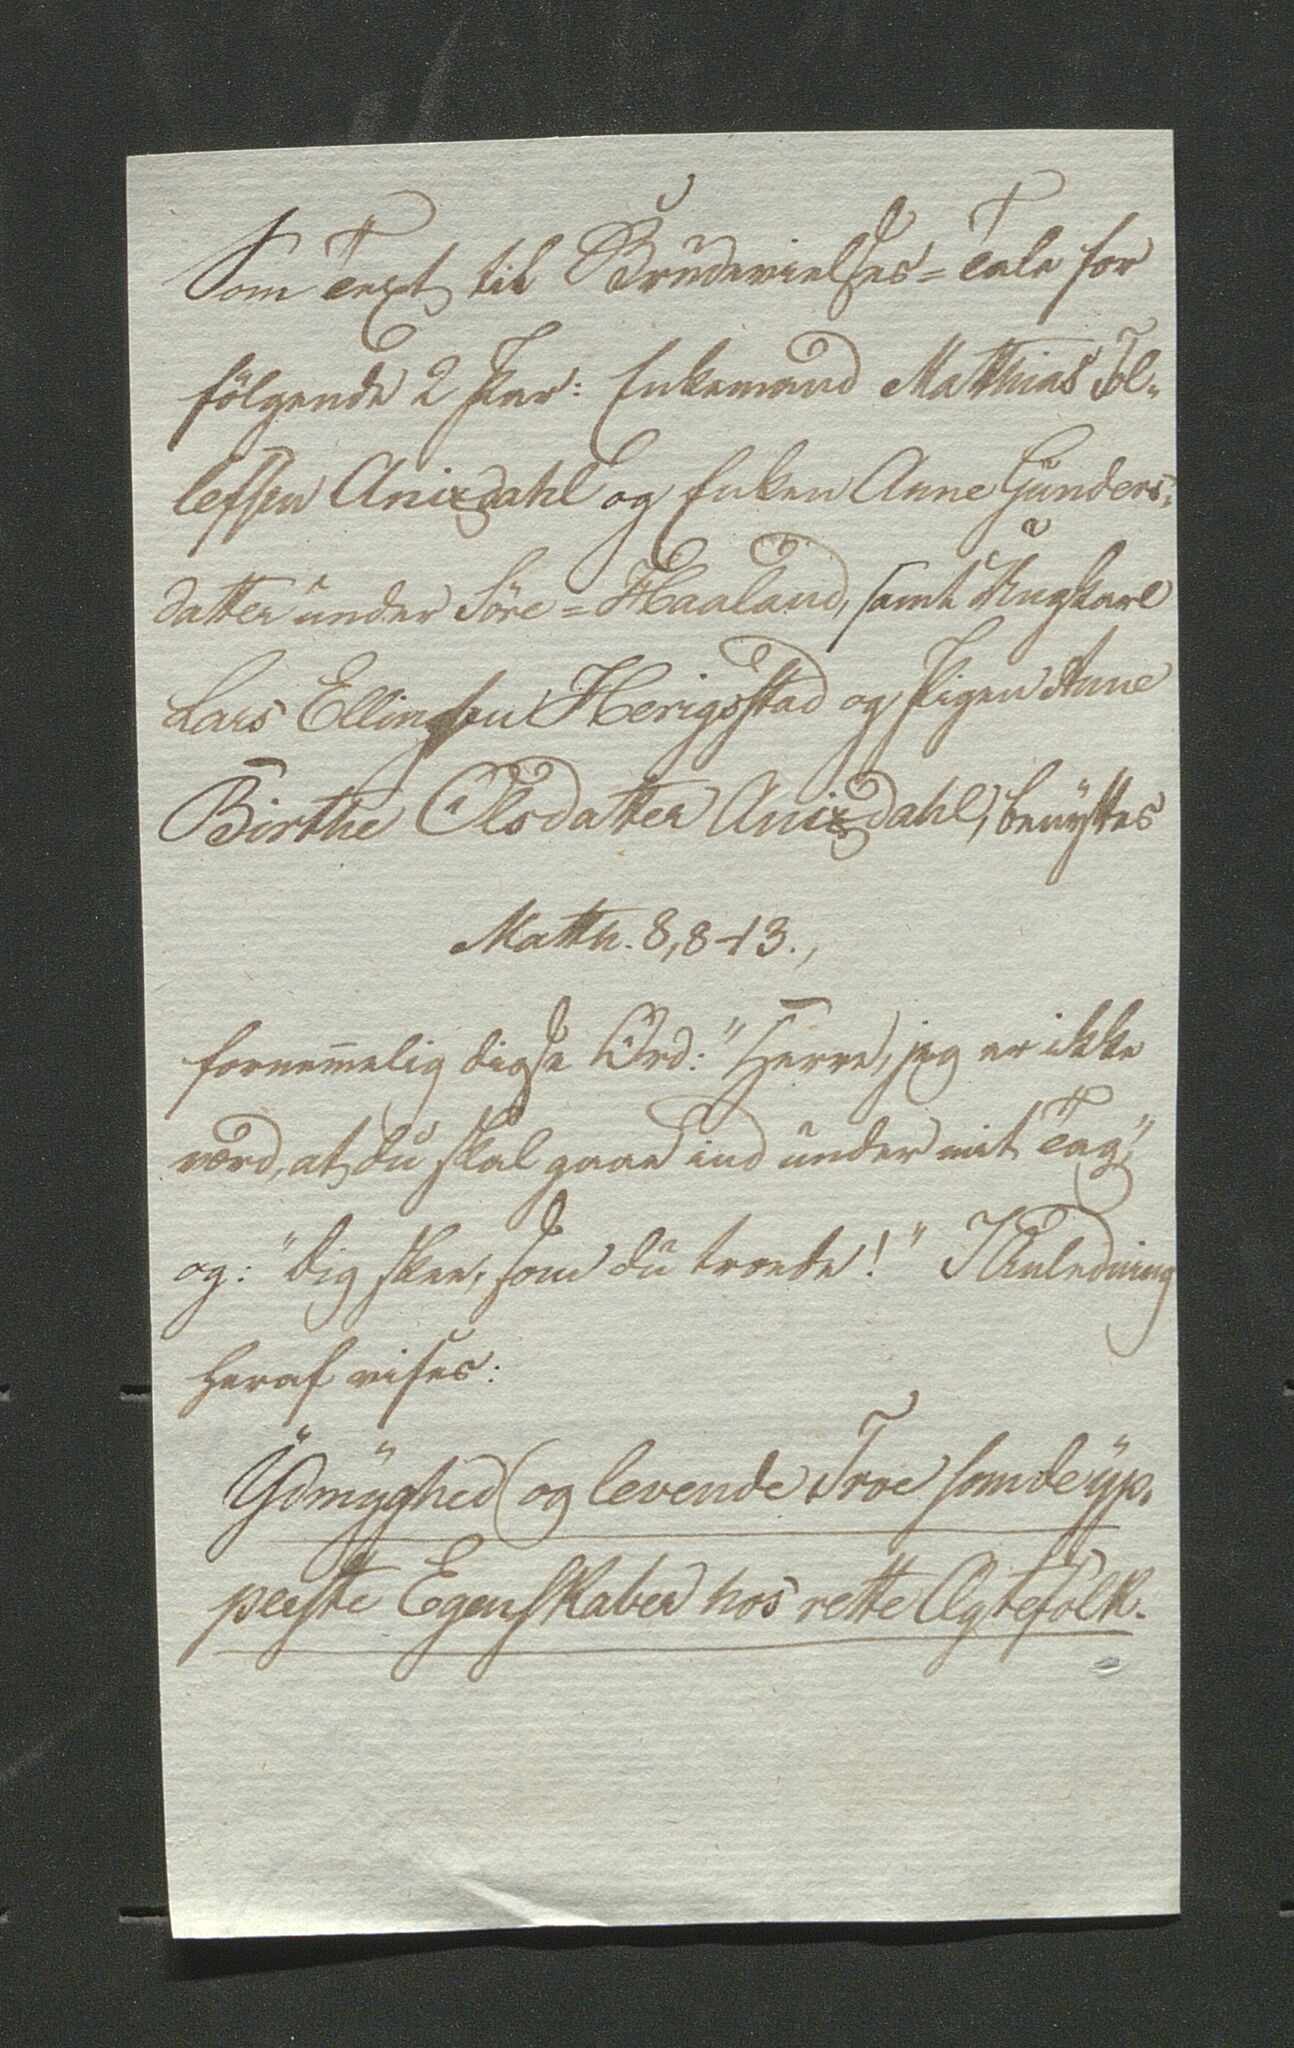 Som Text til Brudevielses=Tale for
følgende 2 Par: Enkemand Matthias Tol-
lefsen Anizdahl og Enken Anne Gunders-
datter under Søre=Haaland, samt Ungkarl
Lars Ellingsen Herigsstad og Pigen Anne
Birthe Olsdatter Anizdahl, benyttes
Matth. 8, 8-13.,
fornemmelig disse Ord: "Herre, jeg er ikke
værd, at du skal gaae ind under mit Tag,"
og: "dig skee, som du troede!" I Anledning
heraf vises:
Ydmyghed og levende Troe som de yp-
perste Egenskaber hos rette Ægtefolk.